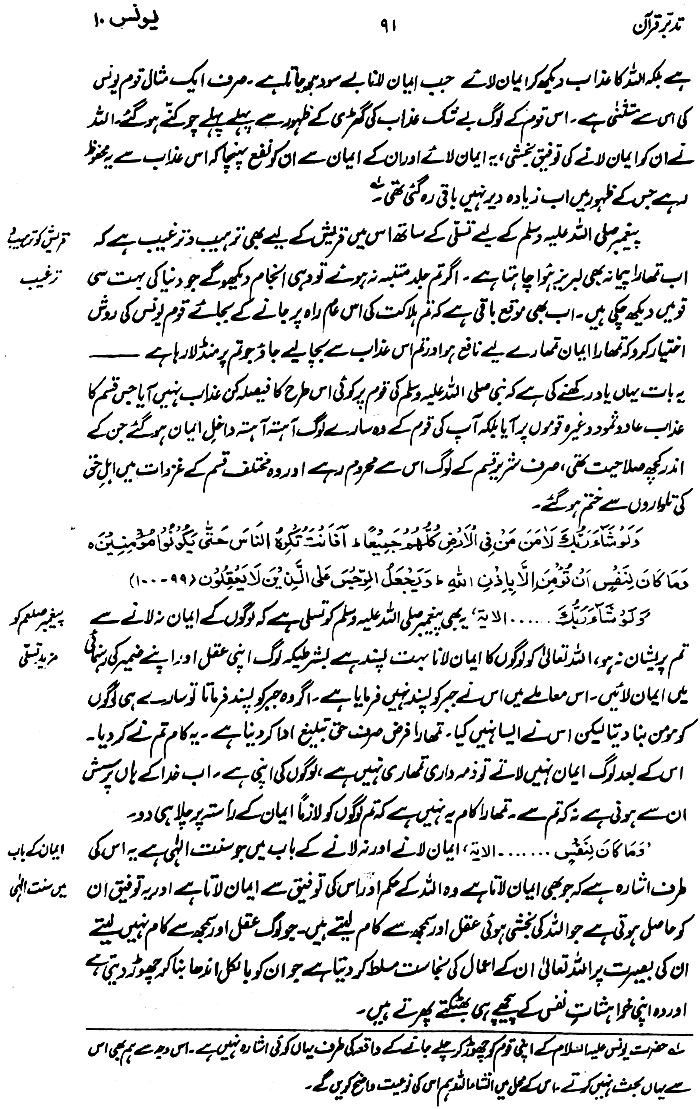 تدبرِ قرآن ۹۱ یونس ۱۰
ہے بلکہ اللہ کا عذاب دیکھ کر ایمان لائے جب ایمان لانا بے سود ہو جاتا ہے۔ صرف ایک مثال قوم یونس
کی اس سے مستثنیٰ ہے۔ اس قوم کے لوگ بے شک عذاب کی گھڑی کے ظہور سے پہلے پہلے چوکنے ہو گئے۔ اللہ
نے ان کو ایمان لانے کی توفیق بخشی، یہ ایمان لائے اور ان کے ایمان سے ان کو نفع پہنچا کہ اس عذاب سے یہ محفوظ
رہے جس کے ظہور میں اب زیادہ دیر نہیں باقی رہ گئی تھی۔ لہ
پیغمبر صلی اللہ علیہ وسلم کے لیے تسلی کے ساتھ اس میں قریش کے لیے بھی ترہیب و ترغیب ہے کہ
قریش کو ترہیب و
ترغیب
اب تمھارا پیمانہ بھی لبریز ہوا چاہتا ہے۔ اگر تم جلد متنبہ نہ ہوئے تو وہی انجام دیکھو گے جو دنیا کی بہت سی
قومیں دیکھ چکی ہیں۔ اب بھی موقع باقی ہے کہ تم ہلاکت کی اس عام راہ پر جانے کے بجائے قوم یونس کی روش
اختیار کرو کہ تمھارا ایمان تمھارے لیے نافع ہو اور تم اس عذاب سے بچا لیے جاؤ جو تم پر منڈلا رہا ہے ———
یہ بات یہاں یاد رکھنے کی ہے کہ نبی صلی اللہ علیہ وسلم کی قوم پر کوئی اس طرح کا فیصلہ کن عذاب نہیں آیا جس قسم کا
عذاب عاد و ثمود وغیرہ قوموں پر آیا بلکہ آپ کی قوم کے وہ سارے لوگ آہستہ آہستہ داخل ایمان ہو گئے جن کے
اندر کچھ صلاحیت تھی، صرف شریر قسم کے لوگ اس سے محروم رہے اور وہ مختلف قسم کے غزوات میں اہل حق
کی تلواروں سے ختم ہو گئے۔
وَلَوْ شَآءَ رَبُّكَ لَاٰمَنَ مَنْ فِی الْاَرْضِ كُلُّهُمْ جَمِیْعًا ؕ اَفَاَنْتَ تُكْرِهُ النَّاسَ حَتّٰی یَكُوْنُوْا مُؤْمِنِیْنَ ہ
وَمَا كَانَ لِنَفْسٍ اَنْ تُؤْمِنَ اِلَّا بِاِذْنِ اللهِ ؕ وَیَجْعَلُ الرِّجْسَ عَلَی الَّذِیْنَ لَا یَعْقِلُوْنَ (۹۹-۱۰۰)
’وَلَوْ شَآءَ رَبُّكَ ...... الایۃ‘، یہ بھی پیغمبر صلی اللہ علیہ وسلم کو تسلی ہے کہ لوگوں کے ایمان نہ لانے سے
پیغمبر صلعم کو
مزید تسلی
تم پریشان نہ ہو، اللہ تعالیٰ کو لوگوں کا ایمان لانا بہت پسند ہے بشرطیکہ لوگ اپنی عقل اور اپنے ضمیر کی رہنمائی
میں ایمان لائیں۔ اس معاملے میں اس نے جبر کو پسند نہیں فرمایا ہے۔ اگر وہ جبر کو پسند فرماتا تو سارے ہی لوگوں
کو مومن بنا دیتا لیکن اس نے ایسا نہیں کیا۔ تمھارا فرض صرف حق تبلیغ ادا کر دینا ہے۔ یہ کام تم نے کر دیا۔
اس کے بعد لوگ ایمان نہیں لاتے تو ذمہ داری تمھاری نہیں ہے، لوگوں کی اپنی ہے۔ اب خدا کے ہاں پرسش
ان سے ہونی ہے نہ کہ تم سے۔ تمھارا کام یہ نہیں ہے کہ تم لوگوں کو لازماً ایمان کے راستہ پر چلا ہی دو۔
’وَمَا كَانَ لِنَفْسٍ ....... الایۃ‘، ایمان لانے اور نہ لانے کے باب میں جو سنت الٰہی ہے یہ اس کی
ایمان کے باب
میں سنت الٰہی
طرف اشارہ ہے کہ جو بھی ایمان لاتا ہے وہ اللہ کے حکم اور اس کی توفیق سے ایمان لاتا ہے اور یہ توفیق ان
کو حاصل ہوتی ہے جو اللہ کی بخشی ہوئی عقل اور سمجھ سے کام لیتے ہیں۔ جو لوگ عقل اور سمجھ سے کام نہیں لیتے
ان کی بصیرت پر اللہ تعالیٰ ان کے اعمال کی نجاست مسلط کر دیتا ہے جو ان کو بالکل اندھا بنا کر چھوڑ دیتی ہے
اور وہ اپنی خواہشات نفس کے پیچھے ہی بھٹکتے پھرتے ہیں۔
لہ حضرت یونس علیہ السلام کے اپنی قوم کو چھوڑ کر چلے جانے کے واقعہ کی طرف یہاں کوئی اشارہ نہیں ہے۔ اس وجہ سے ہم بھی اس
سے یہاں بحث نہیں کرتے۔ اس کے محل میں انشاء اللہ ہم اس کی نوعیت واضح کریں گے۔